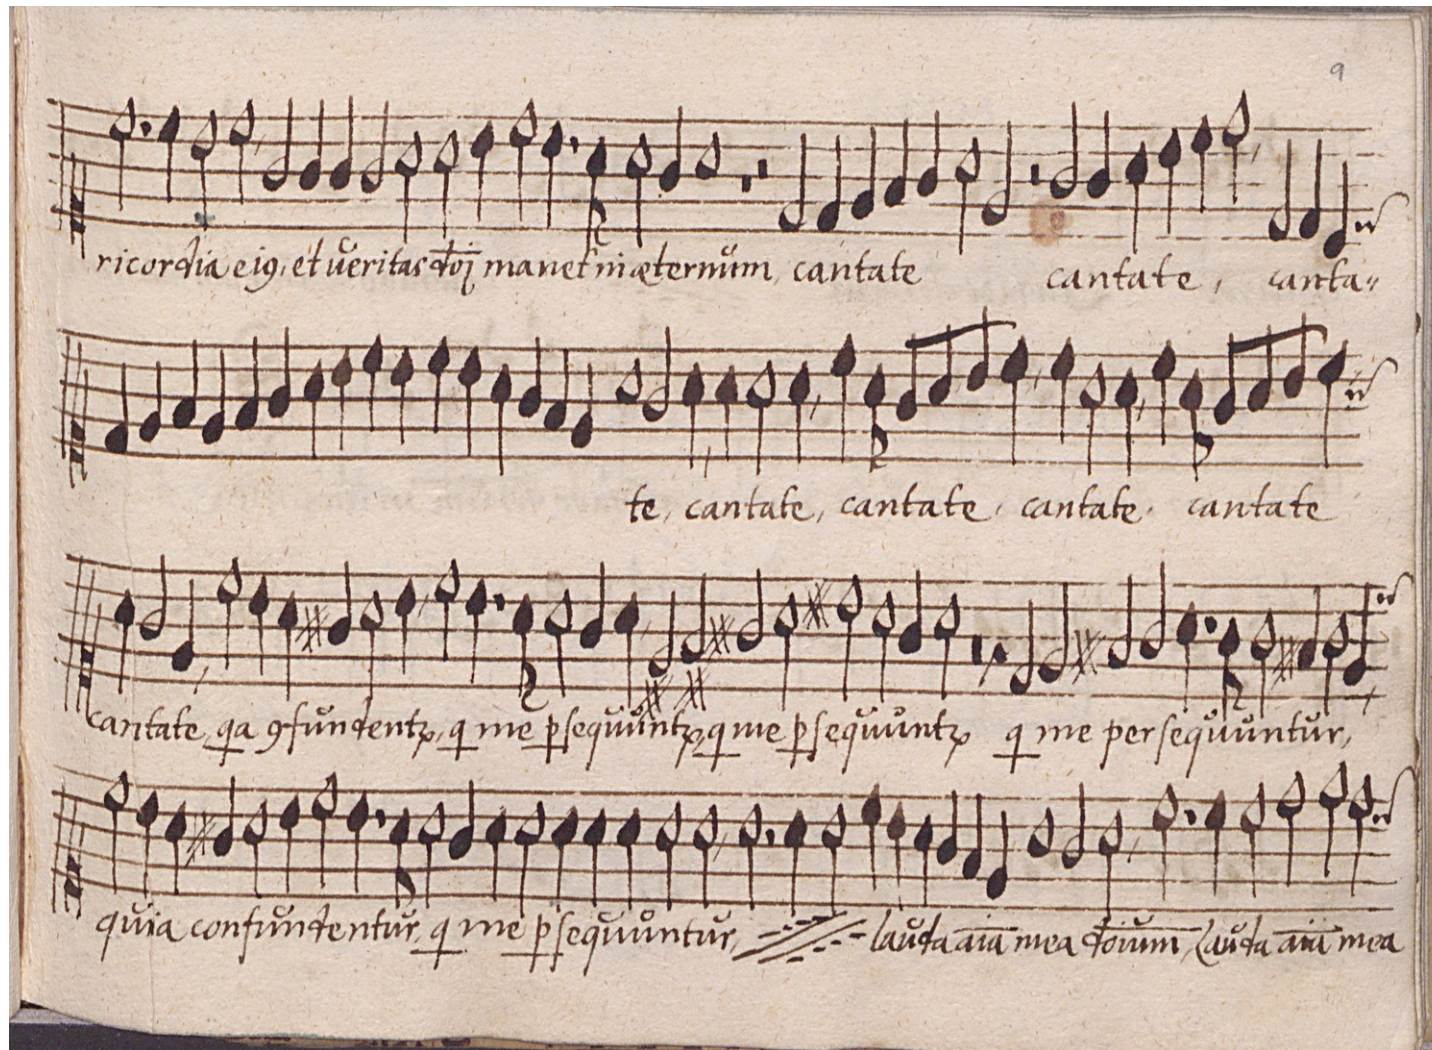 9
ricordia ei9, et veritas dnj manet in æternum, cantate cantate, canta-
te, cantate, cantate, cantate, cantate
cantate, qa 9fundentꝛ, q me ꝑsequuntꝛ, q me ꝑsequuntꝛ q me persequuntur,
quia confundentur, q me ꝑsequuntur, lauda aīa mea dom̄um, Lauda aīa mea